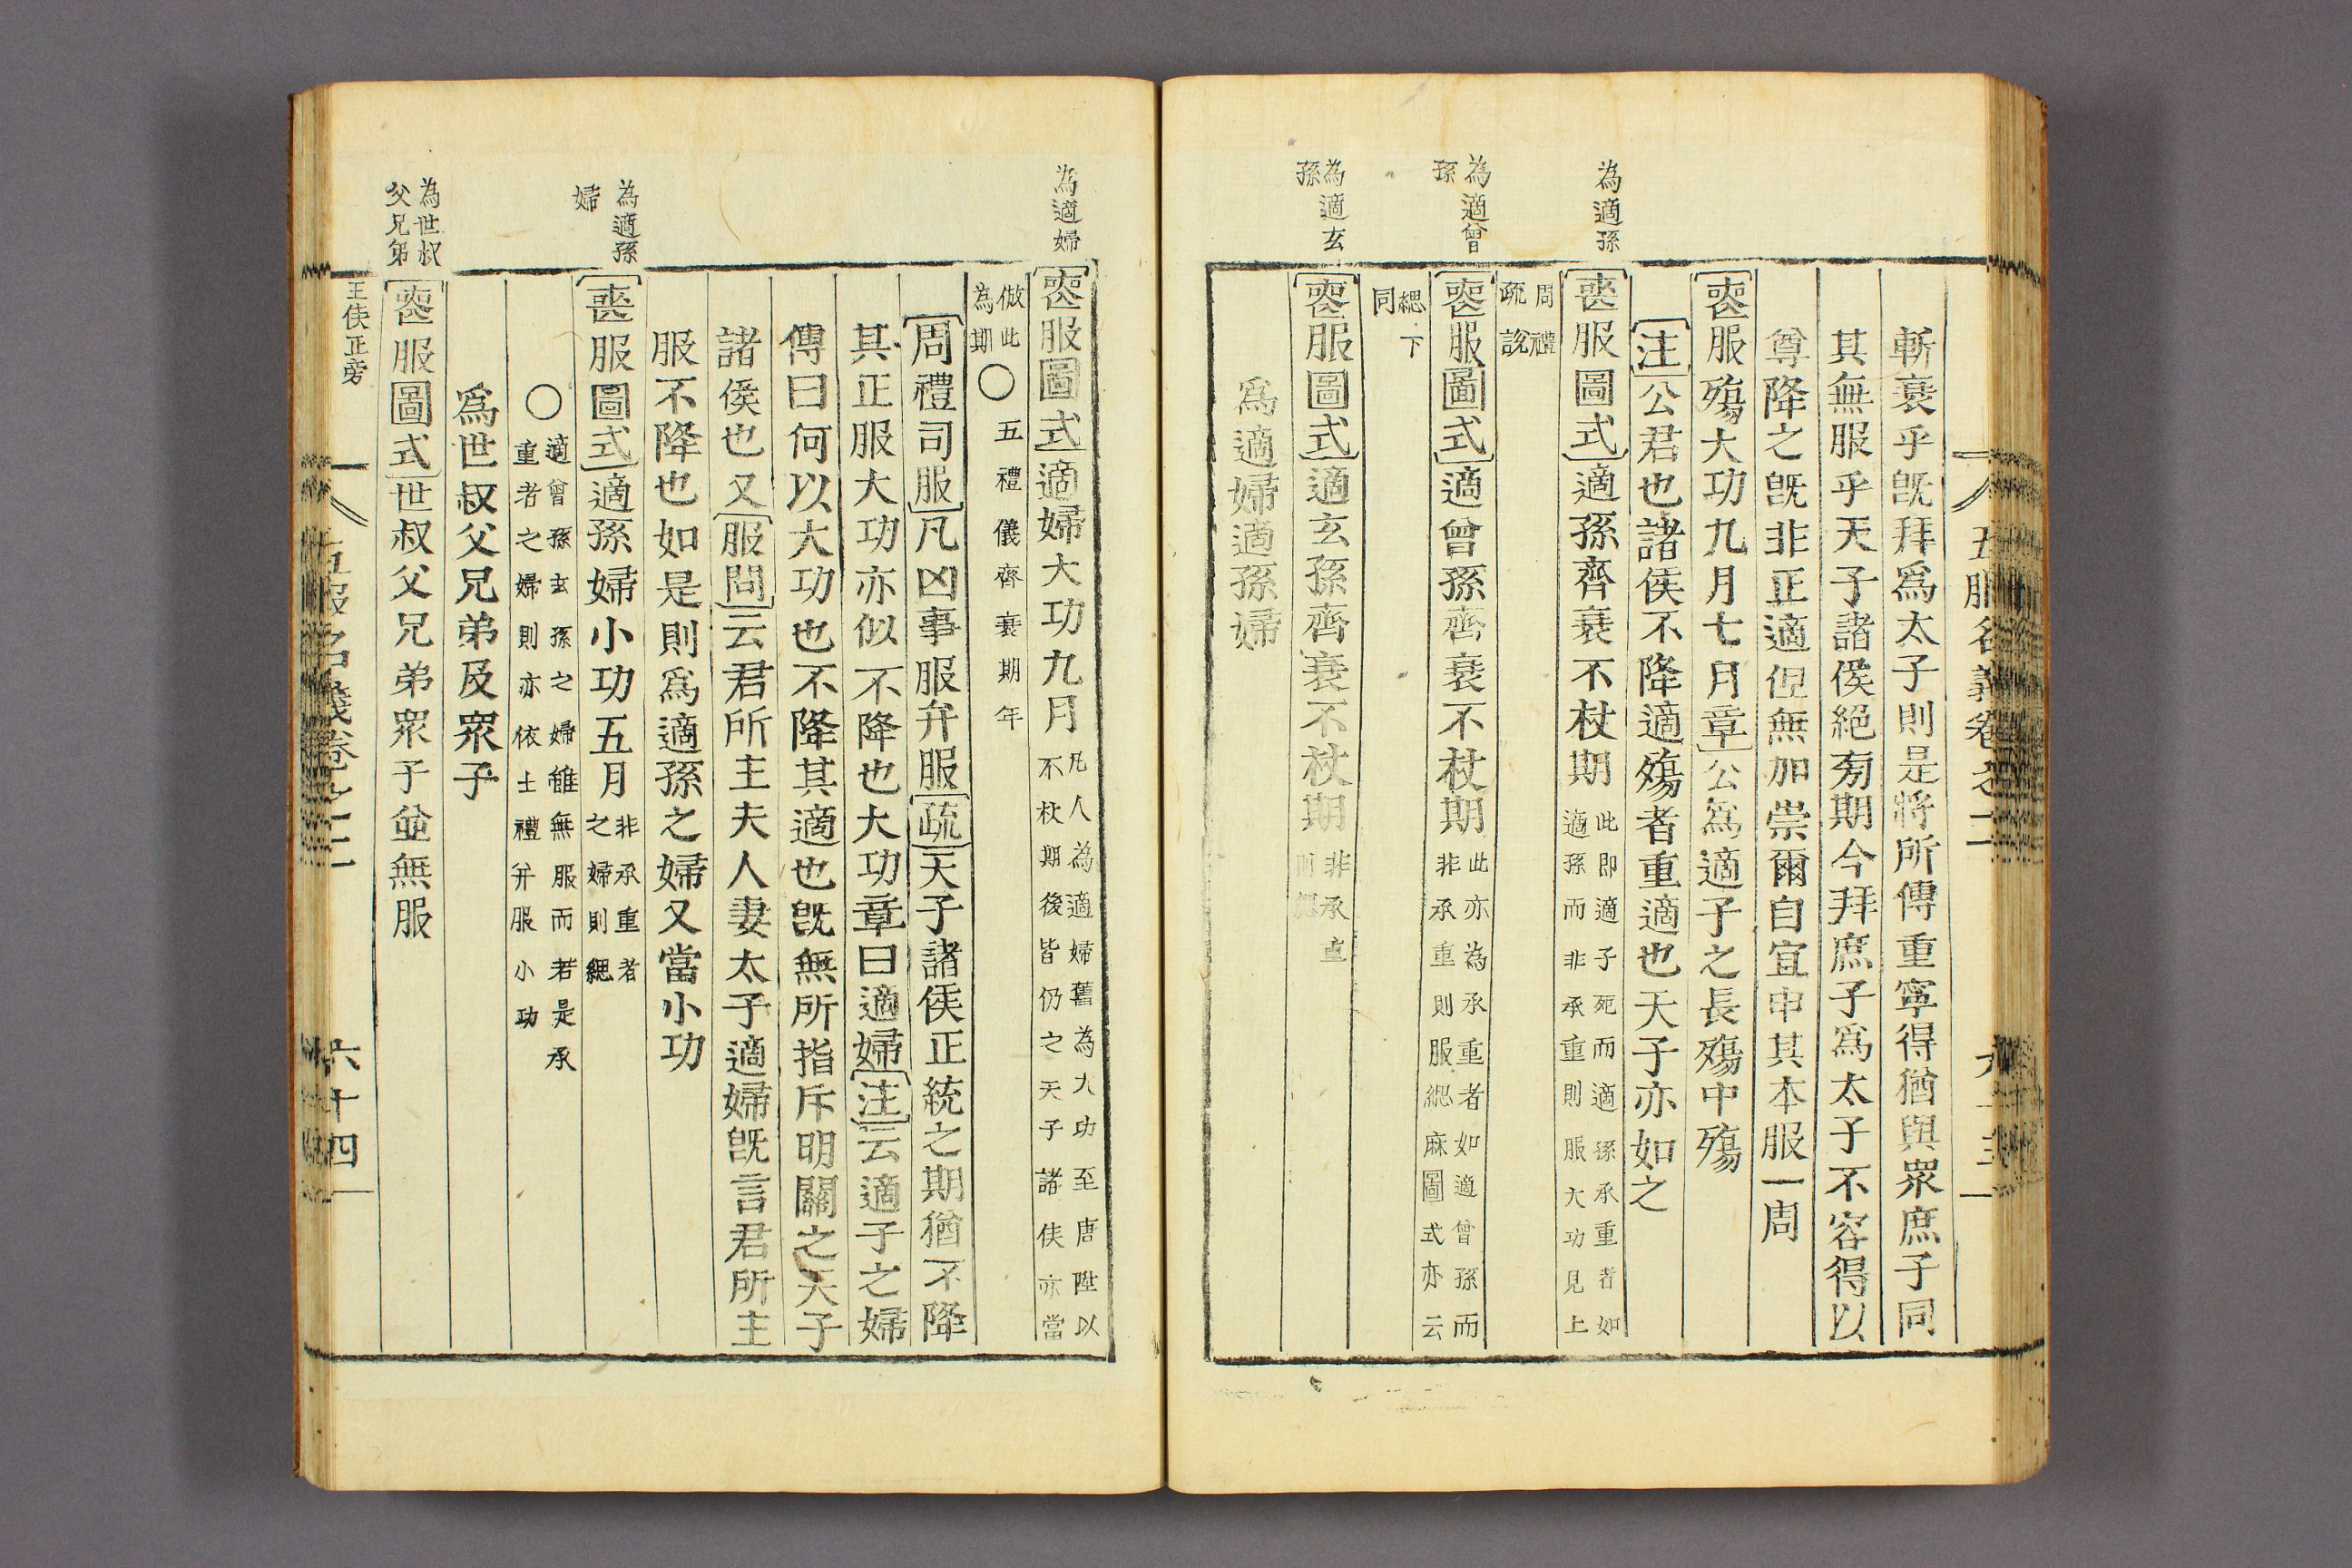 斬衰乎旣拜爲太子則是將所傳重寧得猶與衆庶子同
其無服乎天子諸侯絕旁期今拜庶子爲太子不容得以
尊降之旣非正適但無加崇爾自宜申其本服一周
喪服殤大功九月七月章公爲適子之長殤中殤
注公君也諸侯不降適殤者重適也天子亦如之
為適孫
喪服圖式適孫齊衰不杖期
此即適子死而適孫承重者如
適孫而非承重則服大功見上
周禮
疏說
為適曾
孫
喪服圖式適曾孫齊衰不杖期
此亦為承重者如適曾孫而
非承重則服緦麻圖式亦云
緦下
同
為適玄
孫
喪服圖式適玄孫齊衰不杖期
非承重
則緦
爲適婦適孫婦
為適婦
喪服圖式適婦大功九月
凡人為適婦舊為大功至唐陞以
不杖期後皆仍之天子諸侯亦當
倣此
為期
○五禮儀齊衰期年
周禮司服凡凶事服弁服疏天子諸侯正統之期猶不降
其正服大功亦似不降也大功章曰適婦注云適子之婦
傳曰何以大功也不降其適也旣無所指斥明關之天子
諸侯也又服問云君所主夫人妻太子適婦旣言君所主
服不降也如是則爲適孫之婦又當小功
為適孫
婦
喪服圖式適孫婦小功五月
非承重者
之婦則緦
○
適曾孫玄孫之婦雖無服而若是承
重者之婦則亦依士禮弁服小功
爲世叔父兄弟及衆子
為世叔
父兄弟
喪服圖式世叔父兄弟衆子並無服
王侯正旁
五服名義卷之二
六十四